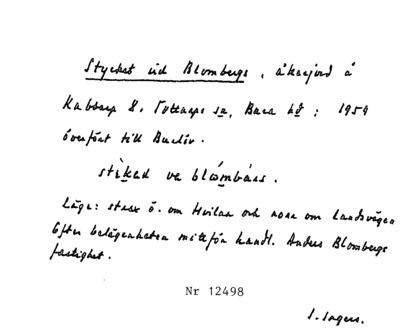 Stycket vid Blombergs, åkerjord å
Kabbarp 8, Tottarps sn, Bara hd; 1959
överfört till Burlöv.
stìkad ve blώmbàrs.
Läge: strax ö. om Hvilan och norr om landsvägen
Efter belägenheten mittför handl. Anders Blombergs
fastighet.
Nr 12498
I. Ingers.